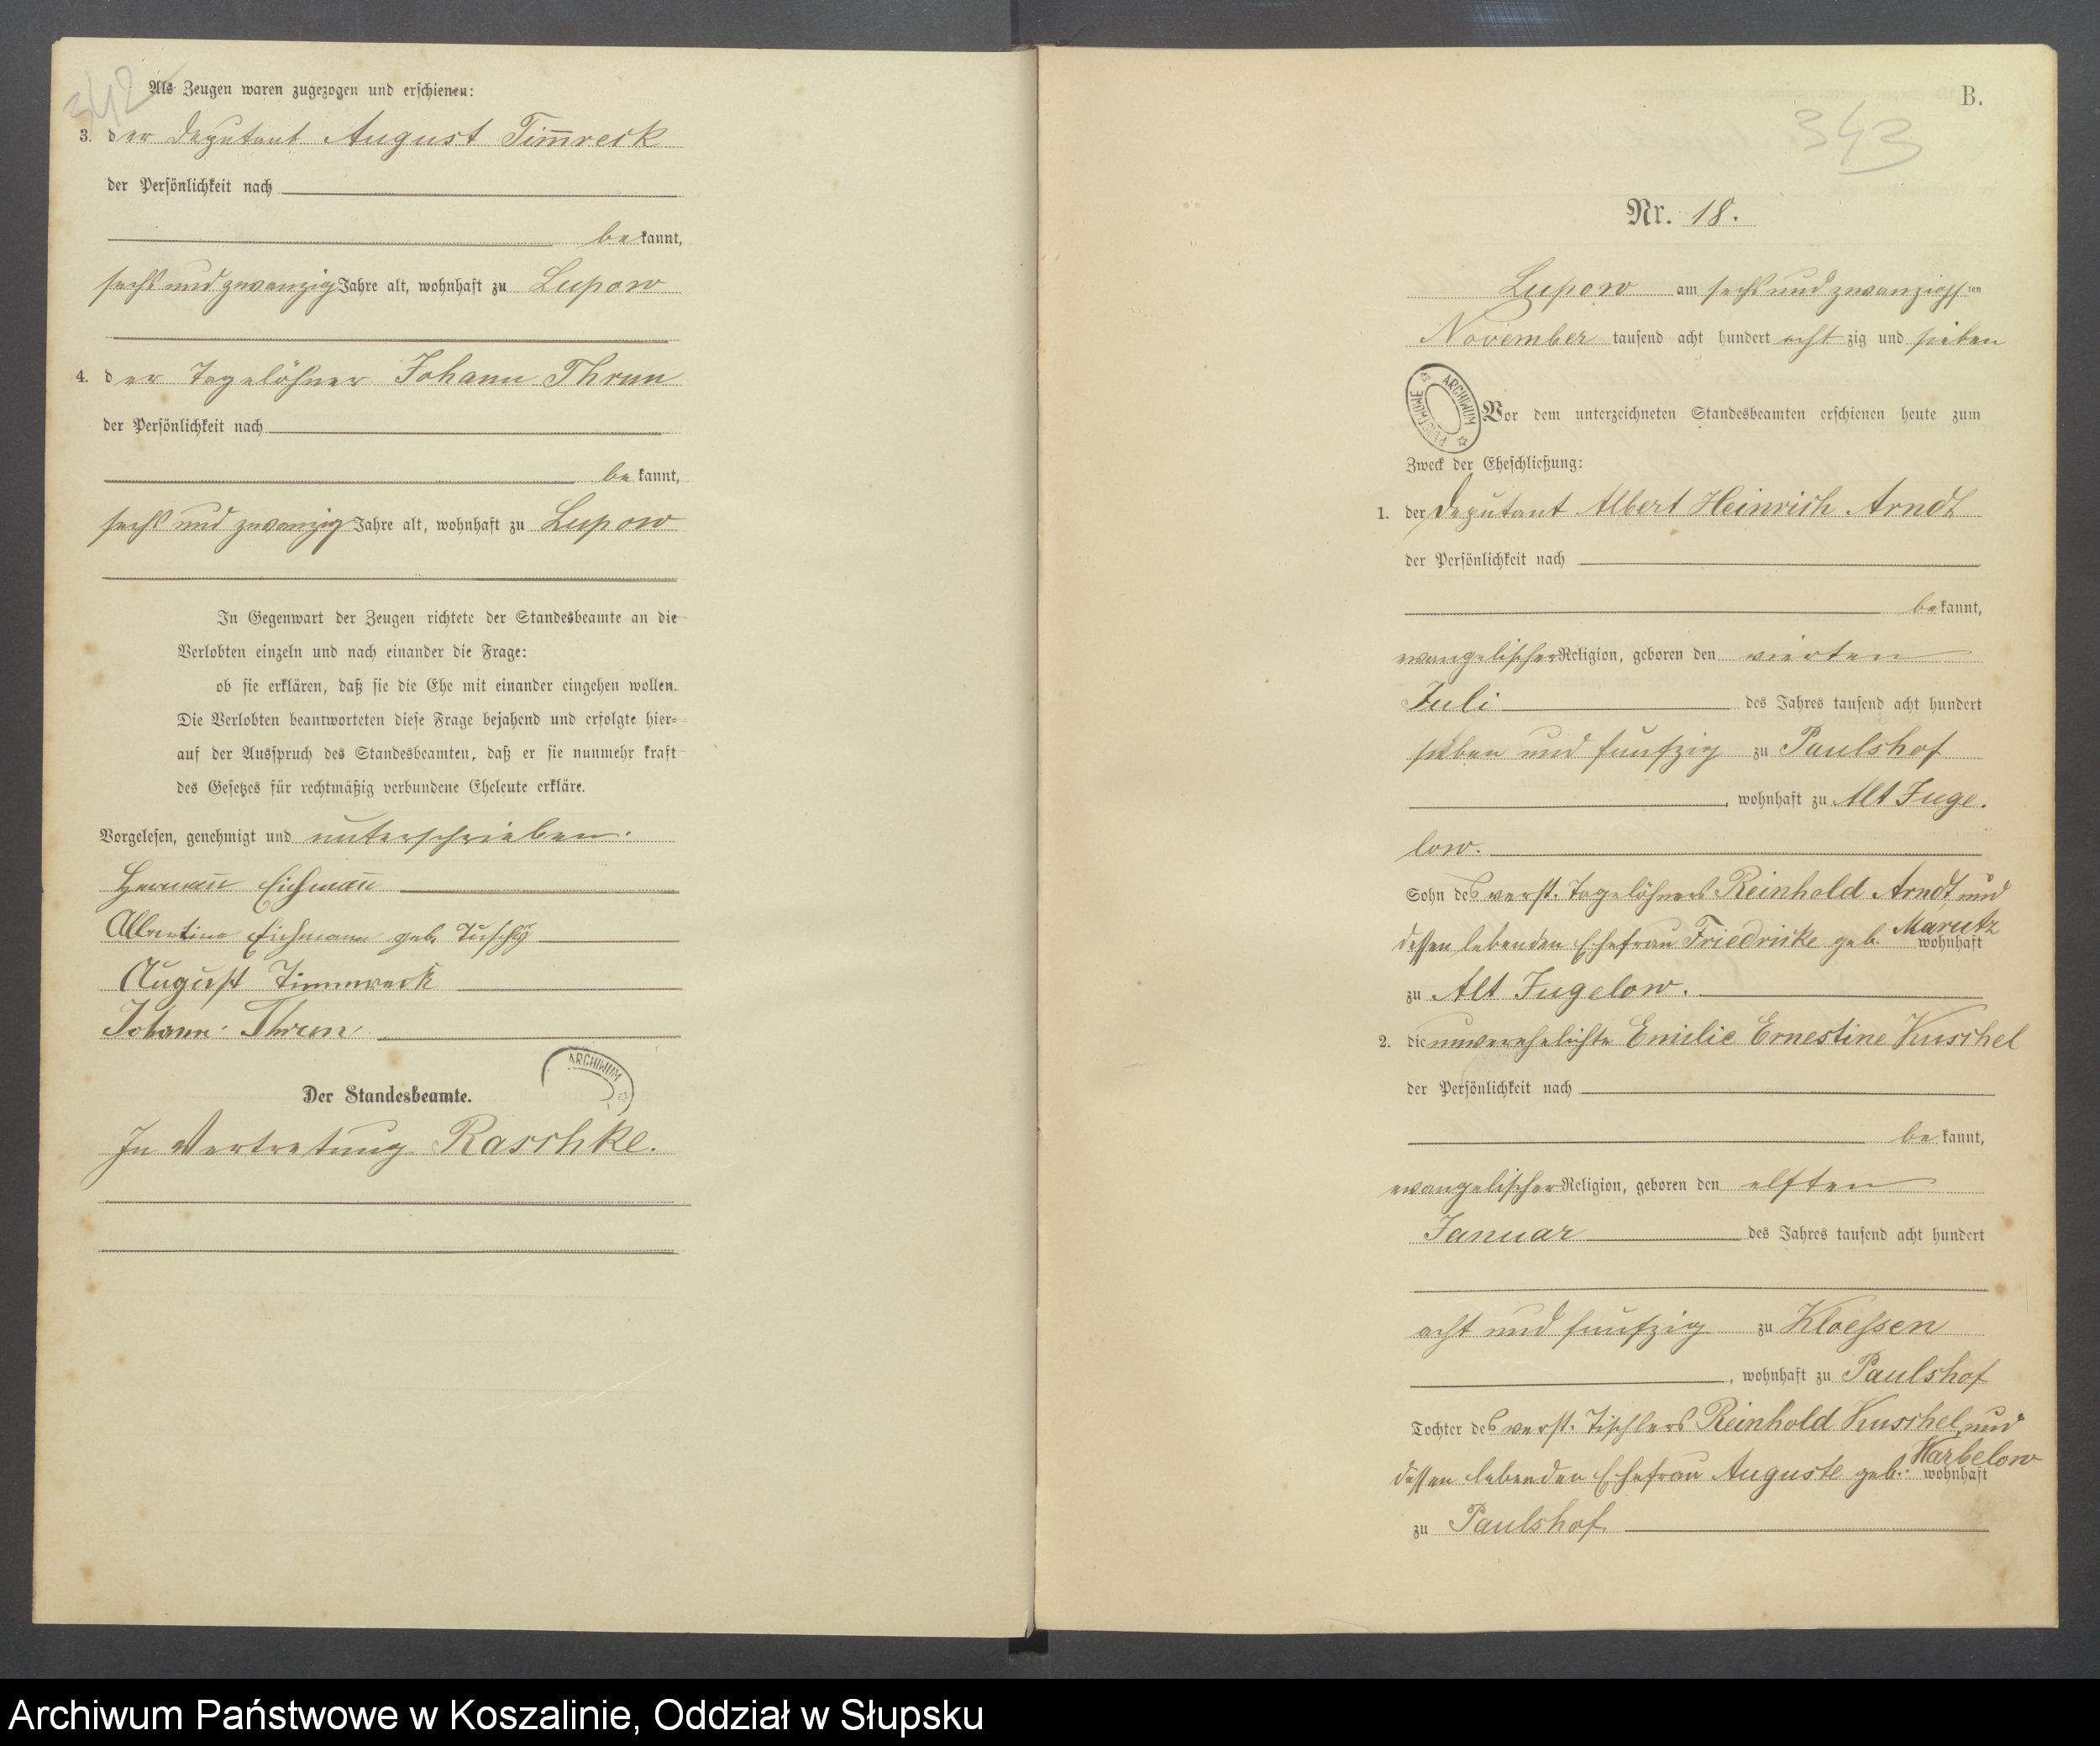 342
Als Zeugen waren zugezogen und erschienen:
3. der Deputant August Tim̅reck
der Persönlichkeit nach
bekannt,
sechs und zwanzig Jahre alt, wohnhaft zu Lupow
4. der Tagelöhner Johann Thrun
der Persönlichkeit nach
bekannt,
sechs und zwanzig Jahre alt, wohnhaft zu Lupow
In Gegenwart der Zeugen richtete der Standesbeamte an die
Verlobten einzeln und nach einander die Frage:
ob sie erklären, daß sie die Ehe mit einander eingehen wollen.
Die Verlobten beantworteten diese Frage bejahend und erfolgte hier-
auf der Ausspruch des Standesbeamten, daß er sie nunmehr kraft
des Gesetzes für rechtmäßig verbundene Eheleute erkläre.
Vorgelesen, genehmigt und unterschrieben.
Herman̅ Eichman̅
Albertine Eichmann geb.
August Timmreck
Johann Thrun
ARCHIWUM
Der Standesbeamte.
In Vertretung Raschke.
B.
343
Nr. 18.
Lupow am sechs und zwanzigsten
November tausend acht hundert achtzig und sieben
ARCHIWUM PAŃSTWOWE
Vor dem unterzeichneten Standesbeamten erschienen heute zum
Zweck der Eheschließung:
1. der Deputant Albert Heinrich Arndt
der Persönlichkeit nach
bekannt,
evangelischer Religion, geboren den vierten
Juli des Jahres tausend acht hundert
sieben und funfzig zu Paulshof
, wohnhaft zu Alt Juge-
low.
Sohn des verst. Tagelöhners Reinhold Arndt und
dessen lebenden Ehefrau Friedricke geb. Marutz wohnhaft
zu Alt Jugelow.
2. die unverehelichte Emilie Ernestine Kuschel
der Persönlichkeit nach
bekannt,
evangelischer Religion, geboren den elften
Januar des Jahres tausend acht hundert
acht und funfzig zu Kloessen
, wohnhaft zu Paulshof
Tochter des verst. Tischlers Reinhold Kuschel und
dessen lebenden Ehefrau Auguste geb. Warbelow wohnhaft
zu Paulshof.
Archiwum Państwowe w Koszalinie, Oddział w Słupsku